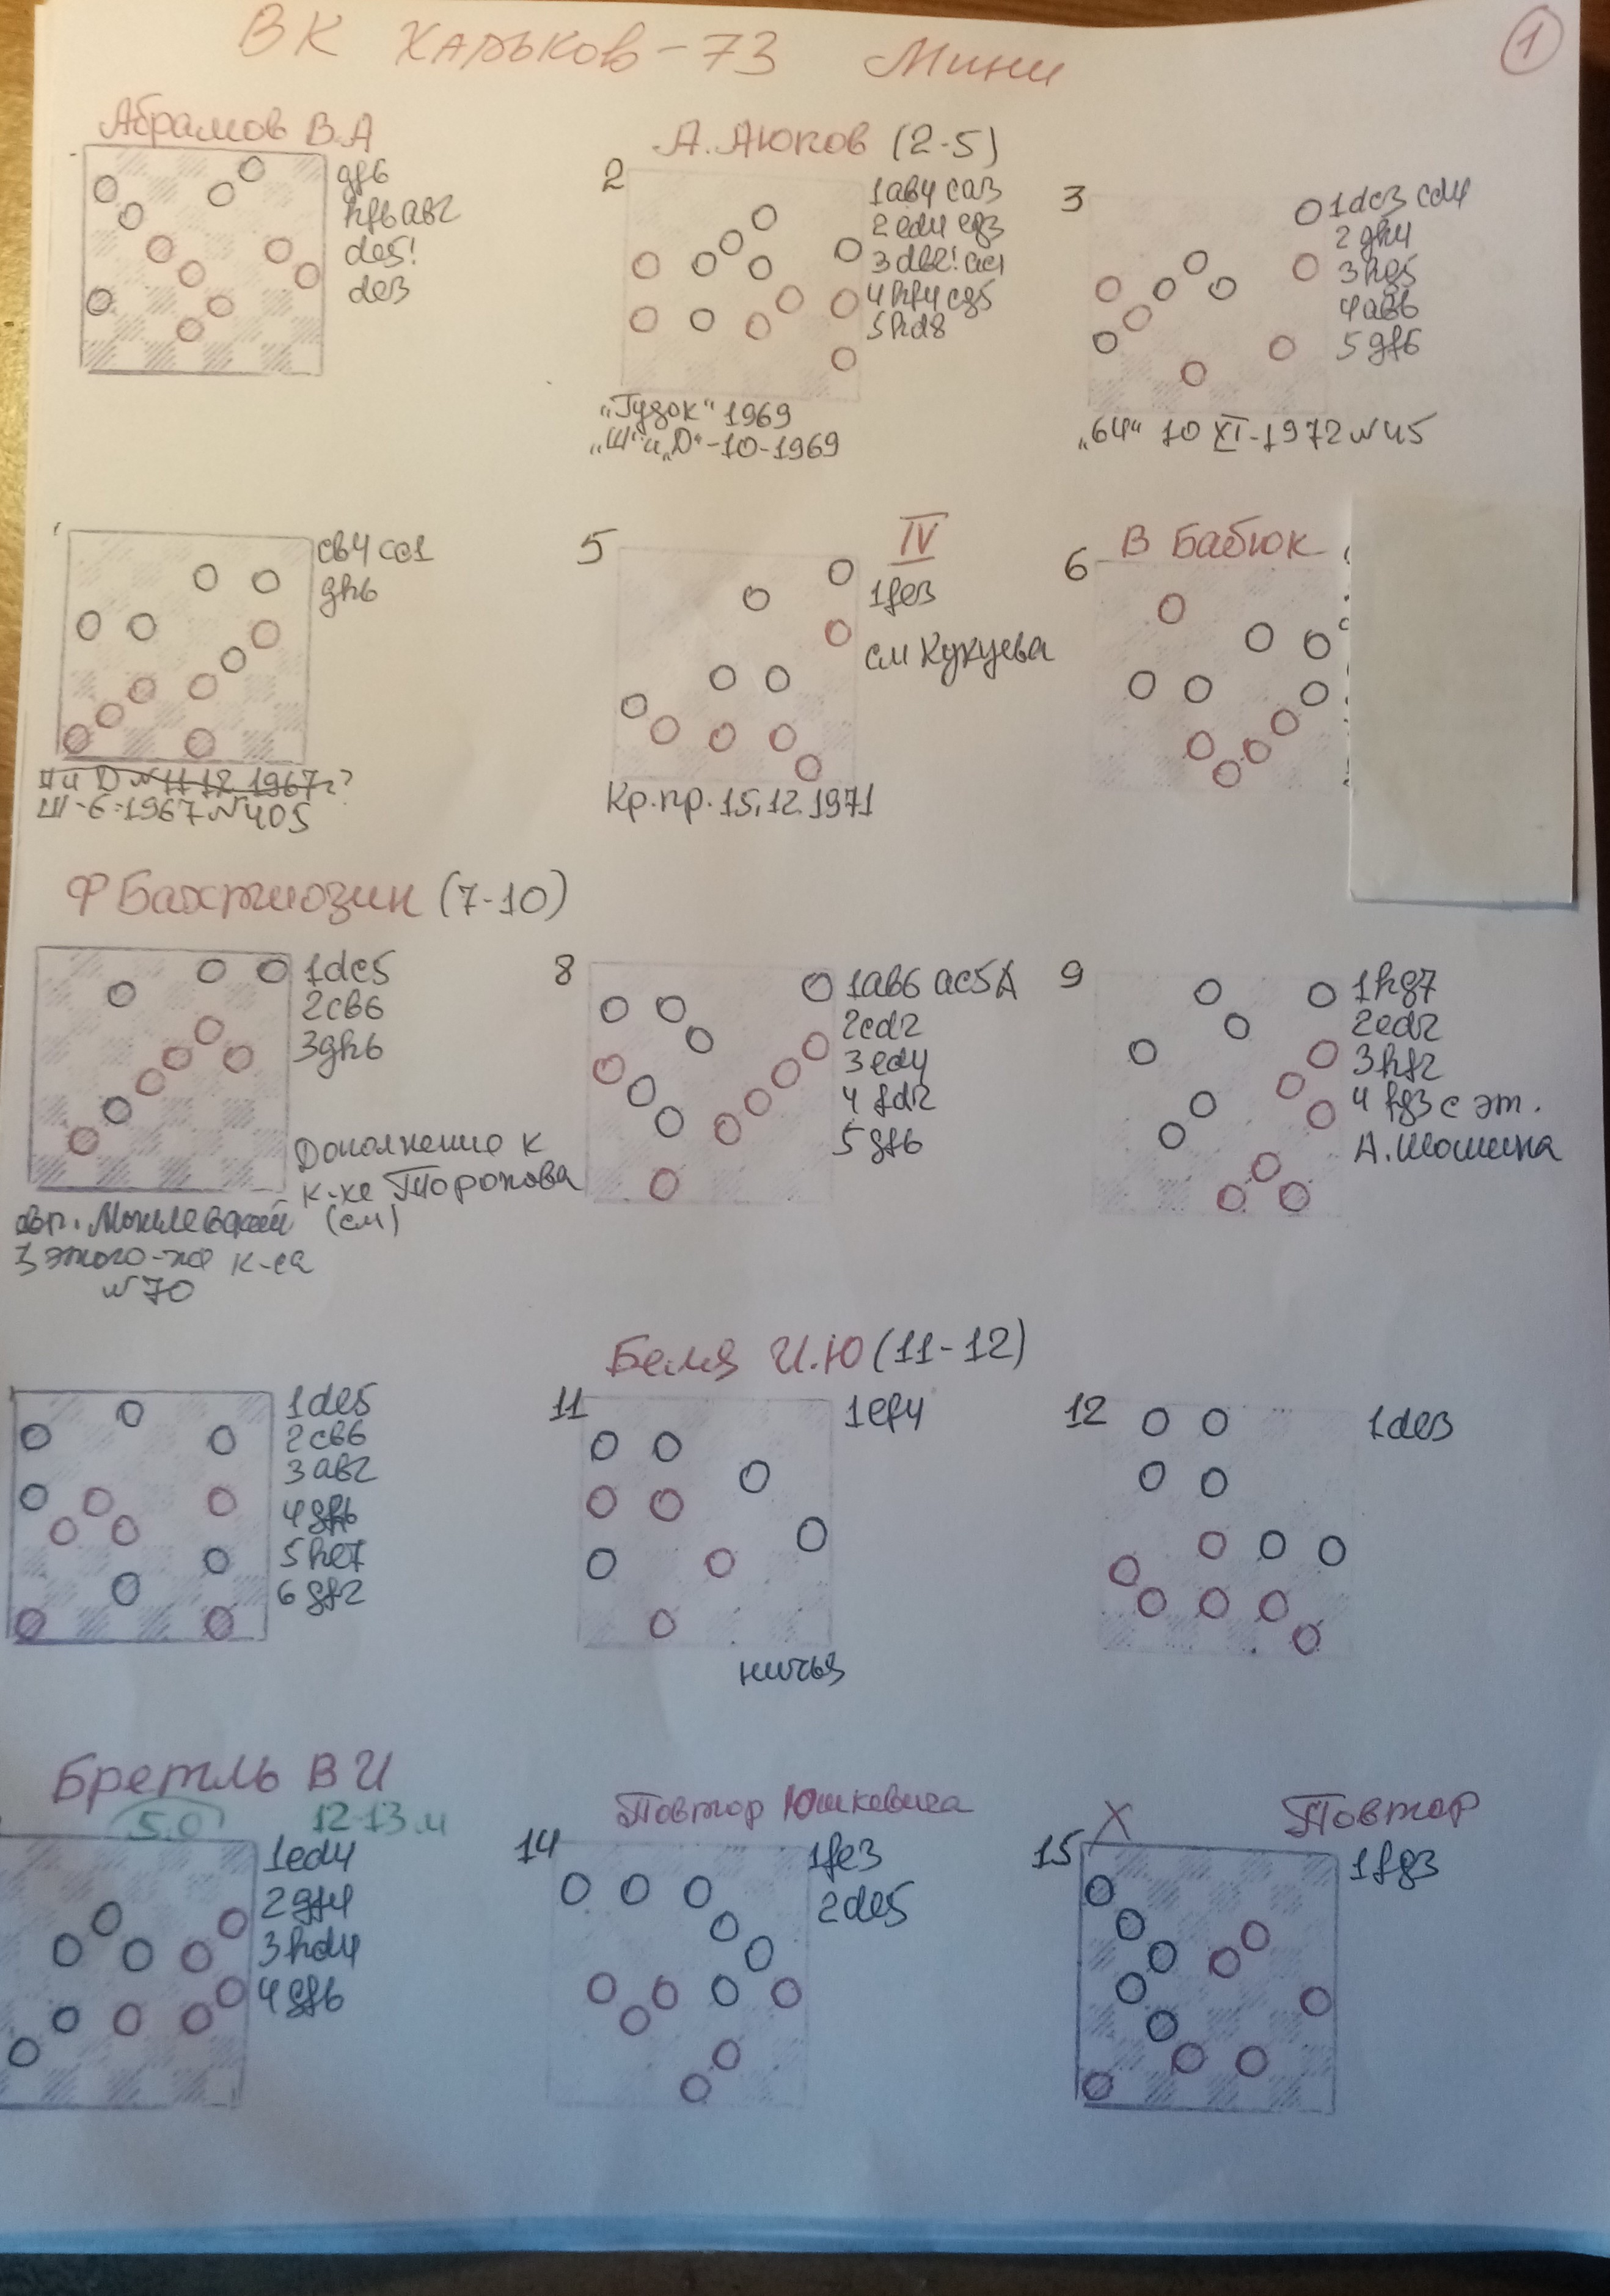 ВК Харьков-73 Мини
1
Абрамов В.А
gf6
hf6 ab2
de5!
de3
А. Аюпов (2-5)
2
1ab4 ca3
2ed4 eg3
3db2! ac1
4hf4 cg5
5hd8
„Гудок" 1969
„Ш" и „Д" -10-1969
3
1dc3 cd4
2gh4
3hg5
4ab6
5gf6
„64" 10 XI-1972 №45
cb4 cc1
gh6
Ш и Д №11 12 1967г?
Ш-6-1967 №405
5
IV
1fe3
см Кукуева
Кр.пр. 15,12 1971
6
В Бабюк
Ф Бахтиозин (7-10)
1dc5
2cb6
3gh6
Дополнение к
к-хе Торопова
(см)
этого-же к-са
№70
8
1ab6 ac5A
2cd2
3ed4
4fd2
5gf6
9
1hg7
2ed2
3hf2
4fg3 с эт.
А. Шошина
1de5
2cb6
3ab2
4gf6
5he7
6gf2
Беля И.Ю (11-12)
11
1ef4
ничья
12
1de3
Бретль В И
5.0
12-13.и
1ed4
2gf4
3hd4
4gf6
Повтор Юшкевича
14
1fe3
2de5
X
Повтор
15
1fg3